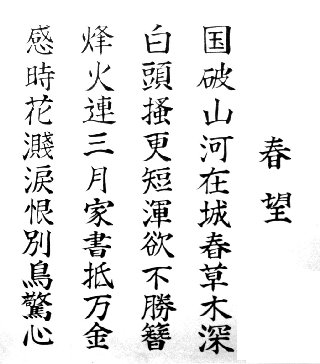 春望
国破山河在城春草木深
白頭搔更短渾欲不勝簪
烽火連三月家書抵万金
感時花濺涙恨別鳥驚心